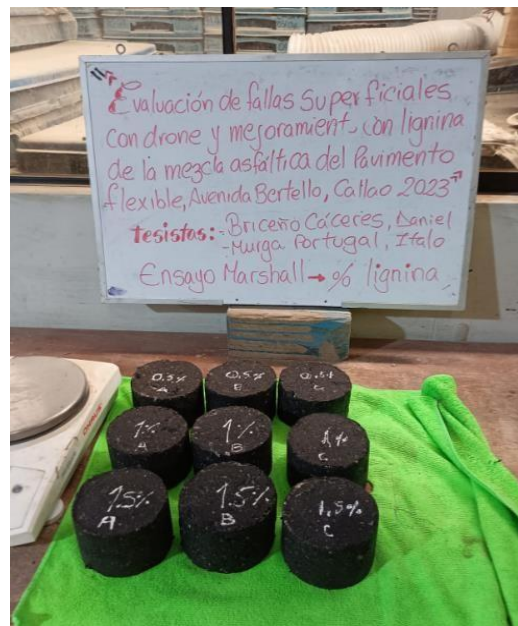 "Evaluación de fallas Superficiales
con drone y mejoramient. con lignina
de la mezcla asfáltica del Pavimento
flexible, Avenida Bertello, Callao 2023"
tesistas: - Briceño Cáceres, Daniel
- Murga Portugal, Italo
Ensayo Marshall → % lignina
0.5% 0.5% 0.5%
A B C
1% 1% 1%
A B C
1.5% 1.5% 1.5%
A B C